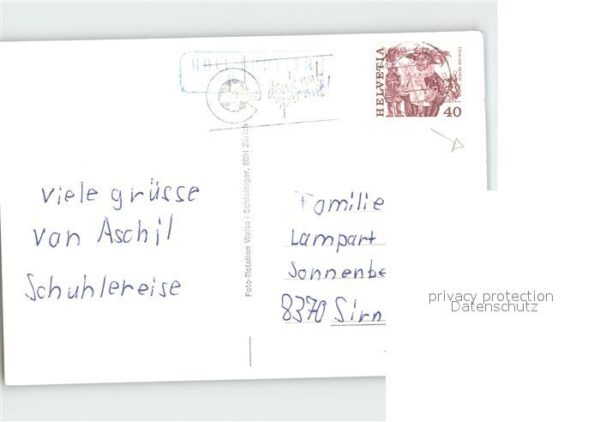 HELVETIA
40
viele grüsse
von Aschil
Schuhlereise
Foto-Rotation Weiss + Schleiniger, 8001 Zürich
Familie
Lampart
Sonnenbe
8370 Sirn
privacy protection
Datenschutz